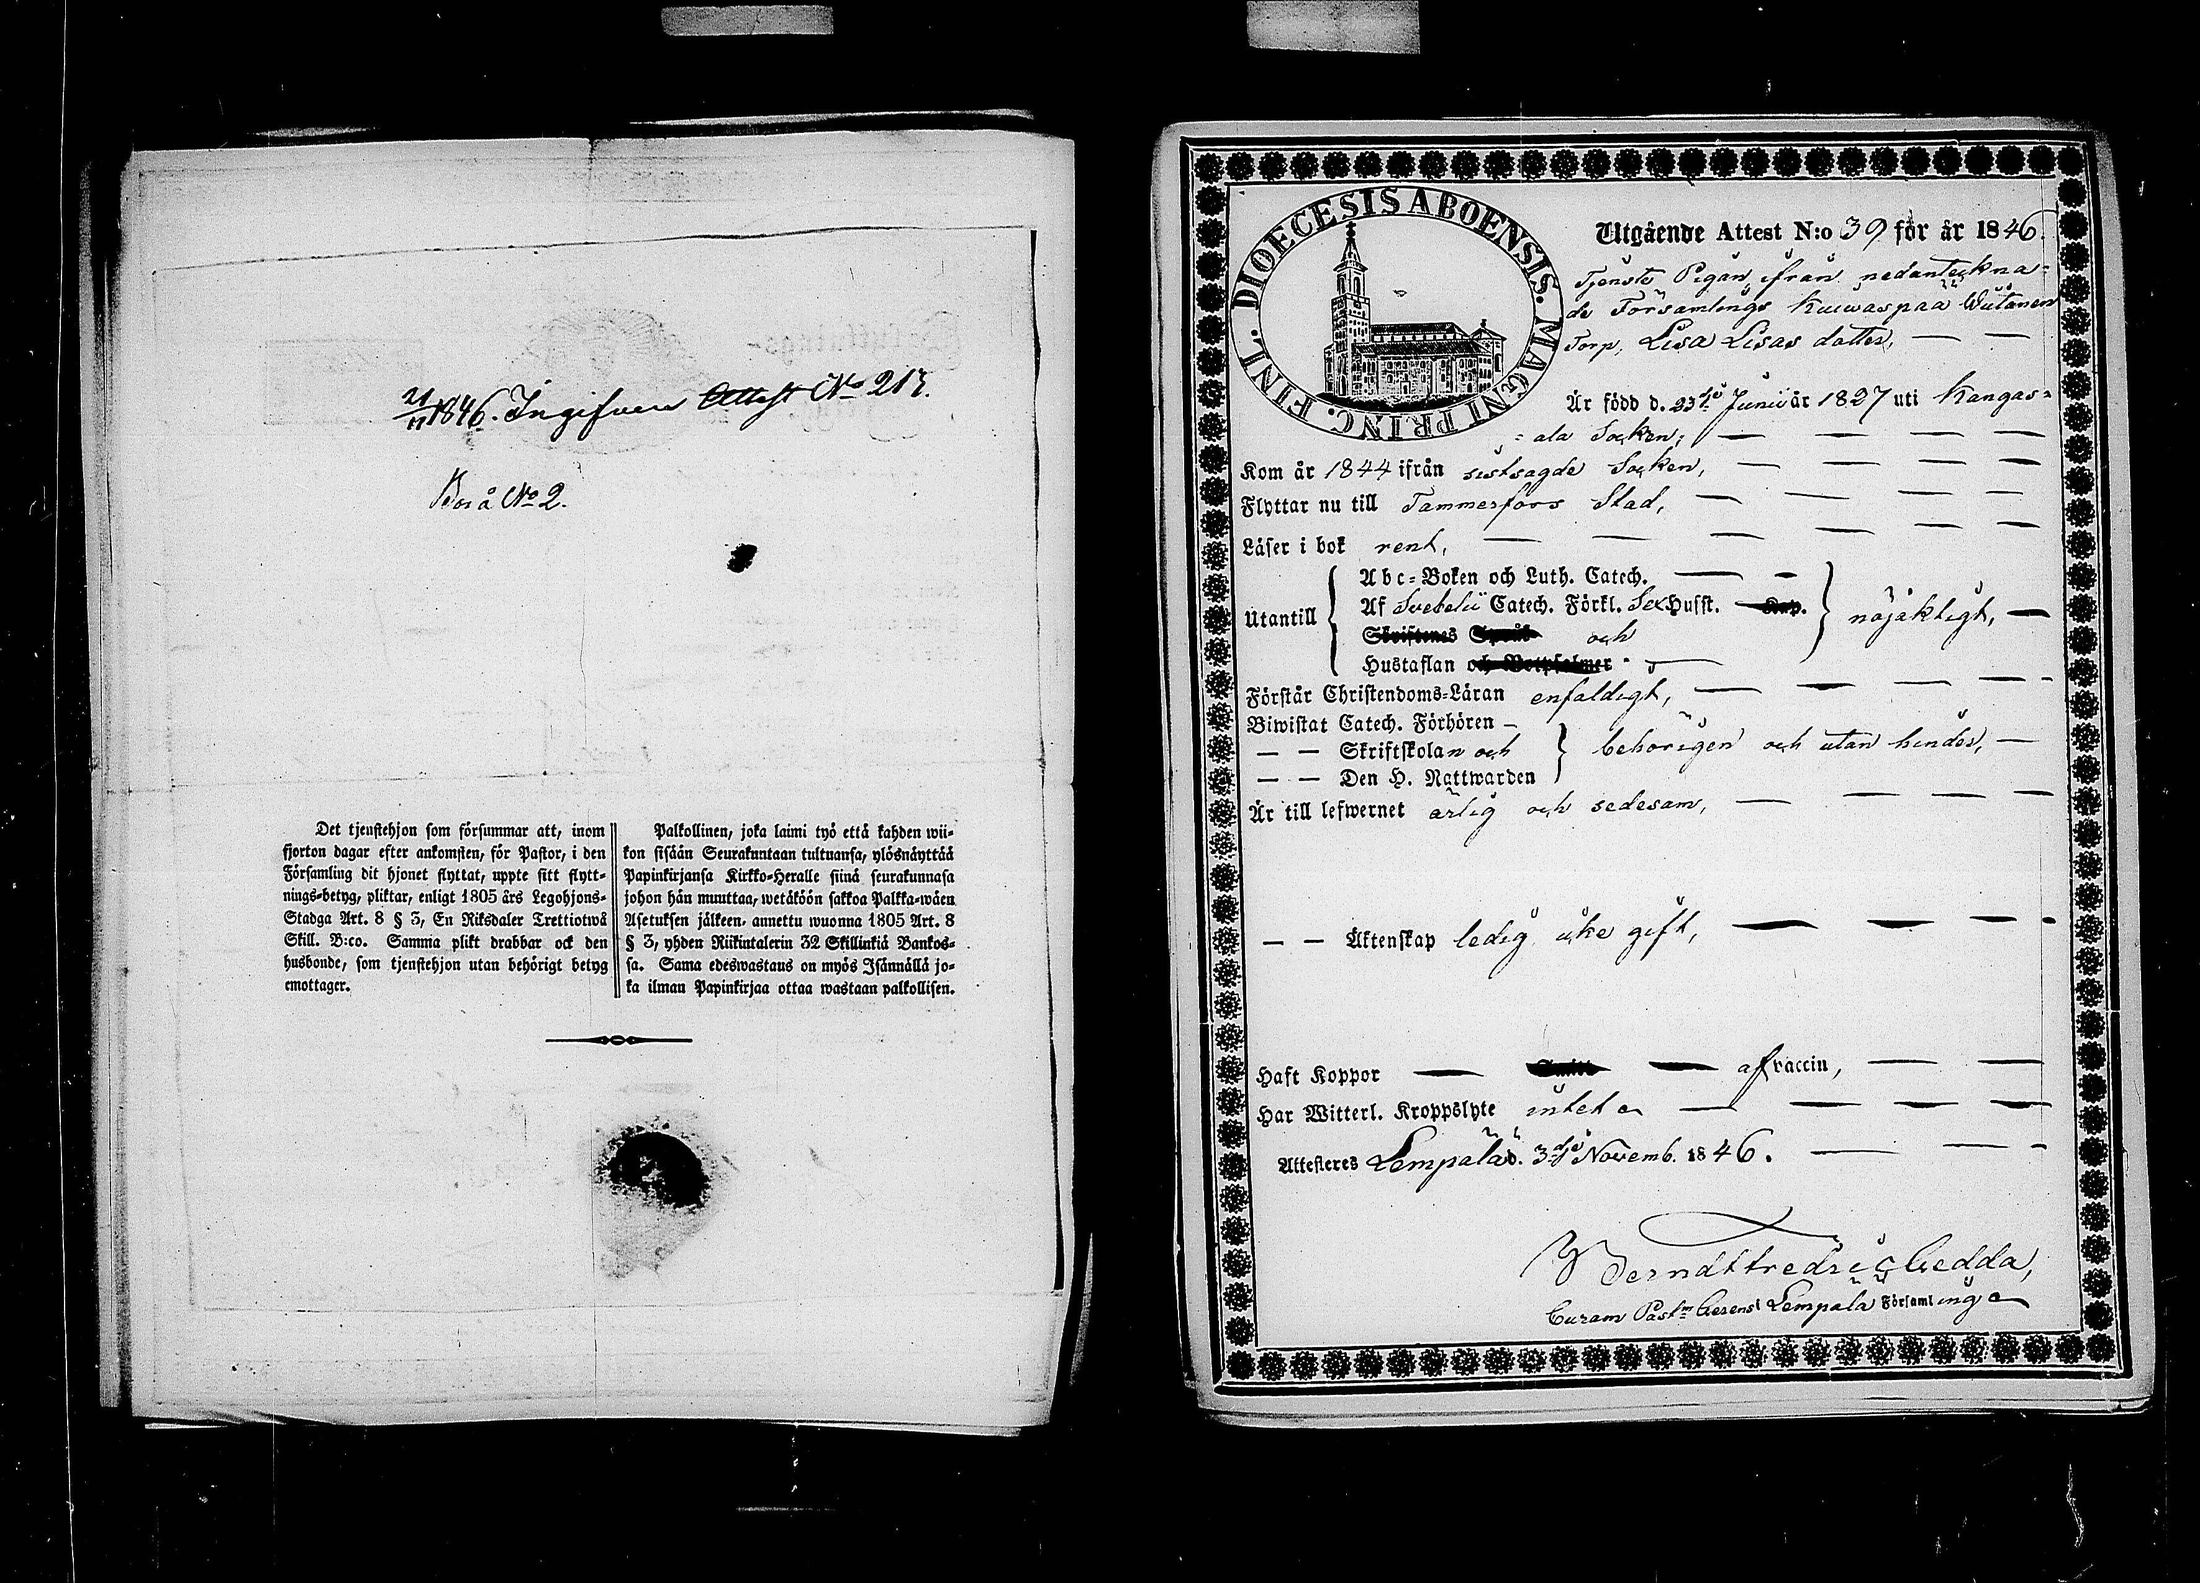 21/11 1846. Ingifven Attest No 217.
Bor å No 2.
Det tjenstehjon som försummar att, inom
fjorton dagar efter ankomsten, för Pastor, i den
Församling dit hjonet flyttat, uppte sitt flytt-
nings-betyg, pliktar, enligt 1805 års Legohjons-
Stadga Art. 8 § 3, En Riksdaler Trettiotwå
Skill. B:co. Samma plikt drabbar ock den
husbonde, som tjenstehjon utan behörigt betyg
emottager.
Palkollinen, joka laimi työ että kahden wii-
kon sisään Seurakuntaan tultuansa, ylösnäyttää
Papinkirjansa Kirkko-Heralle siinä seurakunnasa
johon hän muuttaa, wetäköön sakkoa Palkka-wäen
Asetuksen jälkeen, annettu wuonna 1805 Art. 8
§ 3, yhden Riikintalerin 32 Skillinkiä Bankos-
sa. Sama edeswastaus on myös Isännällä jo-
ka ilman Papinkirjaa ottaa wastaan palkollisen.
DIOECESIS ABOENSIS. MAGNI PRINC. FINL.
Utgående Attest N:o 39 för år 1846.
Tjenste Pigan, ifrån nedanteckna-
de Församlings Kuwaspää Wütanen
Torp, Lisa Lisas dotter,
Är född d. 23dje Junii år 1827 uti Kangas-
=ala Socken;
Kom år 1844 ifrån sistsagde Socken,
Flyttar nu till Tammerfors Stad,
Läser i bok rent,
Utantill
Abc-Boken och Luth. Catech.
Af Svebelii Catech. Förkl. Sex Husst. Kap.
Skriftenes Språk och
Hustaflan och Botpsalmer
nöjaktigt,
Förstår Christendoms-Läran enfaldigt,
Biwistat Catech. Förhören
— — Skriftskolan och
— — Den H. Nattwarden
behörigen och utan hinder,
Är till lefwernet ärlig och sedesam,
— — Äktenskap ledig icke gift,
Haft Koppor af vaccin,
Har Witterl. Kroppslyte intet
Attesteres Lempälä d. 3dje Novemb. 1846.
Berndt Fredric Gedda,
Curam Past:m Gerens i Lempälä Församling